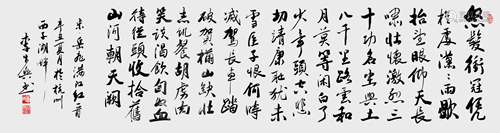 怒髮衝冠凭
栏處潇潇雨歇
抬望眼仰天長
嘯壮懷激烈三
十功名尘與土
八千里路雲和
月莫等闲白了
少年頭空悲
切靖康耻犹未
雪臣子恨何時
滅駕長車踏
破賀蘭山缺壮
志飢餐胡虏肉
笑談渴飲匈奴血
待從頭收拾舊
山河朝天闕
宋岳飛滿江红一首
辛丑夏月於杭州
西子湖畔
李